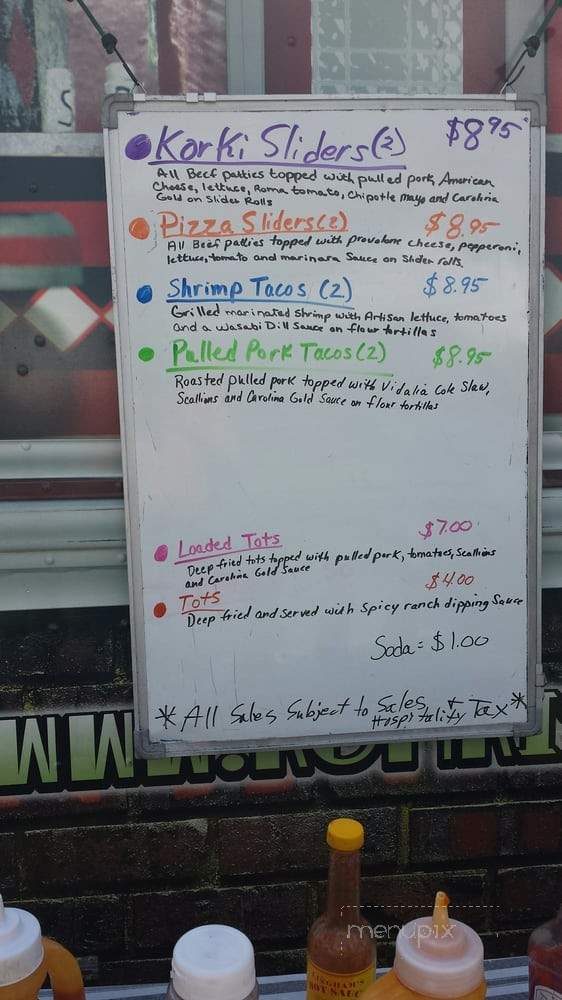 Korki Sliders (2) $8.95
All Beef patties topped with pulled pork, American
Cheese, lettuce, Roma tomato, Chipotle Mayo and Carolina
Gold on Slider Rolls
Pizza Sliders (2) $8.95
All Beef patties topped with provolone cheese, pepperoni,
lettuce, tomato and marinara Sauce on Slider rolls.
Shrimp Tacos (2) $8.95
Grilled marinated Shrimp with Artisan lettuce, tomatoes
and a Wasabi Dill Sauce on flour tortillas
Pulled Pork Tacos (2) $8.95
Roasted pulled pork topped with Vidalia Cole Slaw,
Scallions and Carolina Gold Sauce on flour tortillas
Loaded Tots $7.00
Deep fried tots topped with pulled pork, tomatoes, Scallions
and Carolina Gold Sauce
Tots $4.00
Deep fried and served with Spicy ranch dipping Sauce
Soda = $1.00
*All Sales Subject to Sales + Hospitality Tax*
menupix
HOT SAUCE